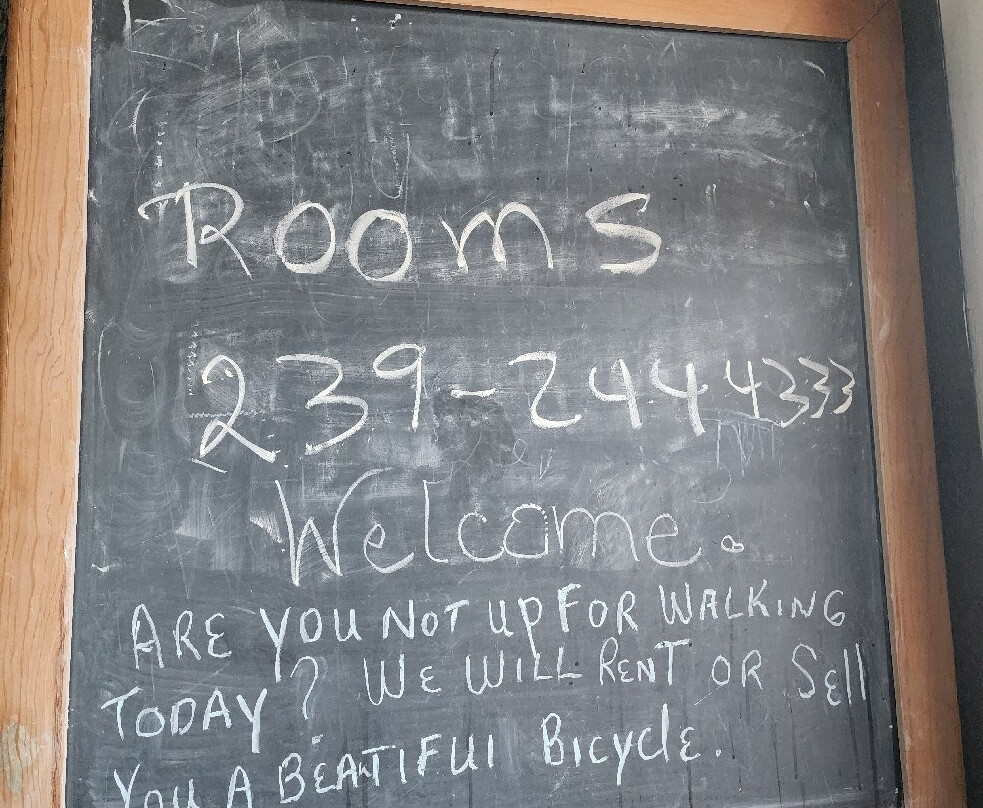 Rooms
239-2444333
Welcome.
ARE YOU NOT UP FOR WALKING
TODAY? WE WILL RENT OR SELL
YOU A BEATIFUL BICYCLE.